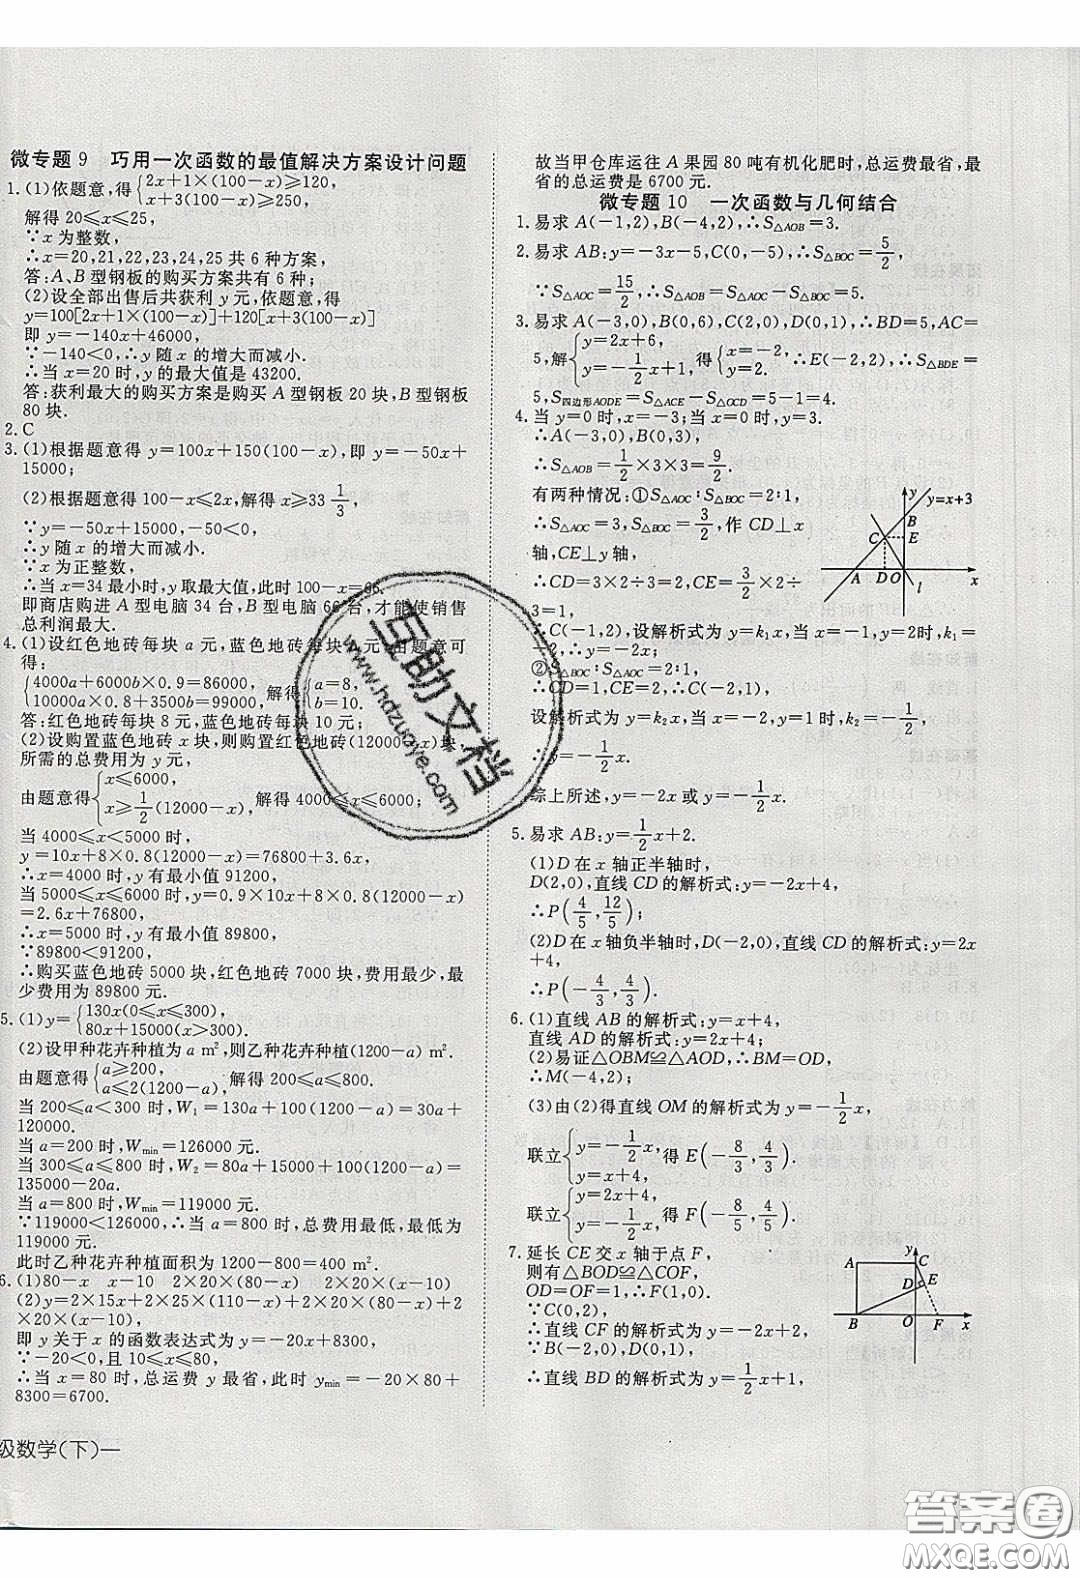 微专题 9 巧用一次函数的最值解决方案设计问题
1.(1)依题意,得{2x+1×(100-x)≥120,
x+3(100-x)≥250,
解得 20≤x≤25,
∵x 为整数,
∴x=20,21,22,23,24,25 共 6 种方案,
答:A、B 型钢板的购买方案共有 6 种;
(2)设全部出售后共获利 y 元,依题意,得
y=100[2x+1×(100-x)]+120[x+3(100-x)]
即 y=-140x+46000,
∵-140<0,∴y 随 x 的增大而减小.
∴当 x=20 时,y 的最大值是 43200.
答:获利最大的购买方案是购买 A 型钢板 20 块,B 型钢板
80 块.
2.C
3.(1)根据题意得 y=100x+150(100-x),即 y=-50x+
15000;
(2)根据题意得 100-x≤2x,解得 x≥33 1/3,
∵y=-50x+15000,-50<0,
∴y 随 x 的增大而减小.
∵x 为正整数,
∴当 x=34 最小时,y 取最大值,此时 100-x=66.
即商店购进 A 型电脑 34 台,B 型电脑 66 台,才能使销售
总利润最大.
4.(1)设红色地砖每块 a 元,蓝色地砖每块 元,由题意可
得:
{4000a+6000b×0.9=86000,
10000a×0.8+3500b=99000, 解得{a=8,
b=10.
答:红色地砖每块 8 元,蓝色地砖每块 10 元;
(2)设购置蓝色地砖 x 块,则购置红色地砖(12000-x)块,
所需的总费用为 y 元,
由题意得{x≤6000,
x≥1/2(12000-x), 解得 4000≤x≤6000;
当 4000≤x<5000 时,
y=10x+8×0.8(12000-x)=76800+3.6x,
∴x=4000 时,y 有最小值 91200,
当 5000≤x≤6000 时,y=0.9×10x+8×0.8(12000-x)
=2.6x+76800,
∴x=5000 时,y 有最小值 89800,
∵89800<91200,
∴购买蓝色地砖 5000 块,红色地砖 7000 块,费用最少,最
少费用为 89800 元.
5.(1)y={130x(0≤x≤300),
80x+15000(x>300).
(2)设甲种花卉种植为 a m²,则乙种花卉种植(1200-a) m².
由题意得{a≥200,
a≤2(1200-a), 解得 200≤a≤800.
当 200≤a<300 时,W₁=130a+100(1200-a)=30a+
120000.
当 a=200 时,Wmin=126000 元.
当 300≤a≤800 时,W₂=80a+15000+100(1200-a)=
135000-20a.
当 a=800 时,Wmin=119000 元.
∵119000<126000,∴当 a=800 时,总费用最低,最低为
119000 元.
此时乙种花卉种植面积为 1200-800=400 m².
6.(1)80-x x-10 2×20×(80-x) 2×20×(x-10)
(2)y=2×15x+2×25×(110-x)+2×20×(80-x)+2
×20×(x-10),
即 y 关于 x 的函数表达式为 y=-20x+8300,
∵-20<0,且 10≤x≤80,
∴当 x=80 时,总运费 y 最省,此时 ymin=-20×80+
8300=6700.
级数学(下)—
故当甲仓库运往 A 果园 80 吨有机化肥时,总运费最省,最
省的总运费是 6700 元.
微专题 10 一次函数与几何结合
1.易求 A(-1,2),B(-4,2),∴S△AOB=3.
2.易求 AB:y=-3x-5,C(0,-5),∴S△BOC=5/2,
∵S△AOC=15/2,∴S△AOB=S△AOC-S△BOC=5.
3.易求 A(-3,0),B(0,6),C(2,0),D(0,1),∴BD=5,AC=
5,解{y=2x+6,
y=-1/2x+1, 得{x=-2,
y=2. ∴E(-2,2),∴S△BDE=
5,S四边形AODE=S△ACE-S△OCD=5-1=4.
4.当 y=0 时,x=-3;当 x=0 时,y=3.
∴A(-3,0),B(0,3),
∴S△AOB=1/2×3×3=9/2.
有两种情况:①S△AOC:S△BOC=2:1,
∴S△AOC=3,S△BOC=3/2,作 CD⊥x
轴,CE⊥y 轴,
∴CD=3×2÷3=2,CE=3/2×2÷
3=1,
∴C(-1,2),设解析式为 y=k₁x,当 x=-1,y=2时,k₁=
-2,∴y=-2x;
②S△BOC:S△AOC=2:1,
∴CD=1,CE=2,∴C(-2,1),
设解析式为 y=k₂x,当 x=-2,y=1 时,k₂=-1/2,
∴y=-1/2x.
综上所述,y=-2x 或 y=-1/2x.
5.易求 AB:y=1/2x+2.
(1)D 在 x 轴正半轴时,
D(2,0),直线 CD 的解析式:y=-2x+4,
∴P(4/5,12/5);
(2)D 在 x 轴负半轴时,D(-2,0),直线 CD 的解析式:y=2x
+4,
∴P(-4/3,4/3).
6.(1)直线 AB 的解析式:y=x+4,
直线 AD 的解析式:y=2x+4;
(2)易证△OBM≌△AOD,∴BM=OD,
∴M(-4,2);
(3)由(2)得直线 OM 的解析式为 y=-1/2x,
联立{y=-1/2x,
y=x+4, 得 E(-8/3,4/3),
联立{y=2x+4,
y=-1/2x, 得 F(-8/5,4/5).
7.延长 CE 交 x 轴于点 F,
则有△BOD≌△COF,
OD=OF=1,∴F(1,0),
∵C(0,2),
∴直线 CF 的解析式为 y=-2x+2,
∵B(-2,0),D(0,1),
∴直线 BD 的解析式为 y=1/2x+1,
y
y=x+3
B
C E
A D O l x
y
A C
D E
B O F x
互助文档
www.hdzuoye.com
答案圈
MXQE.COM